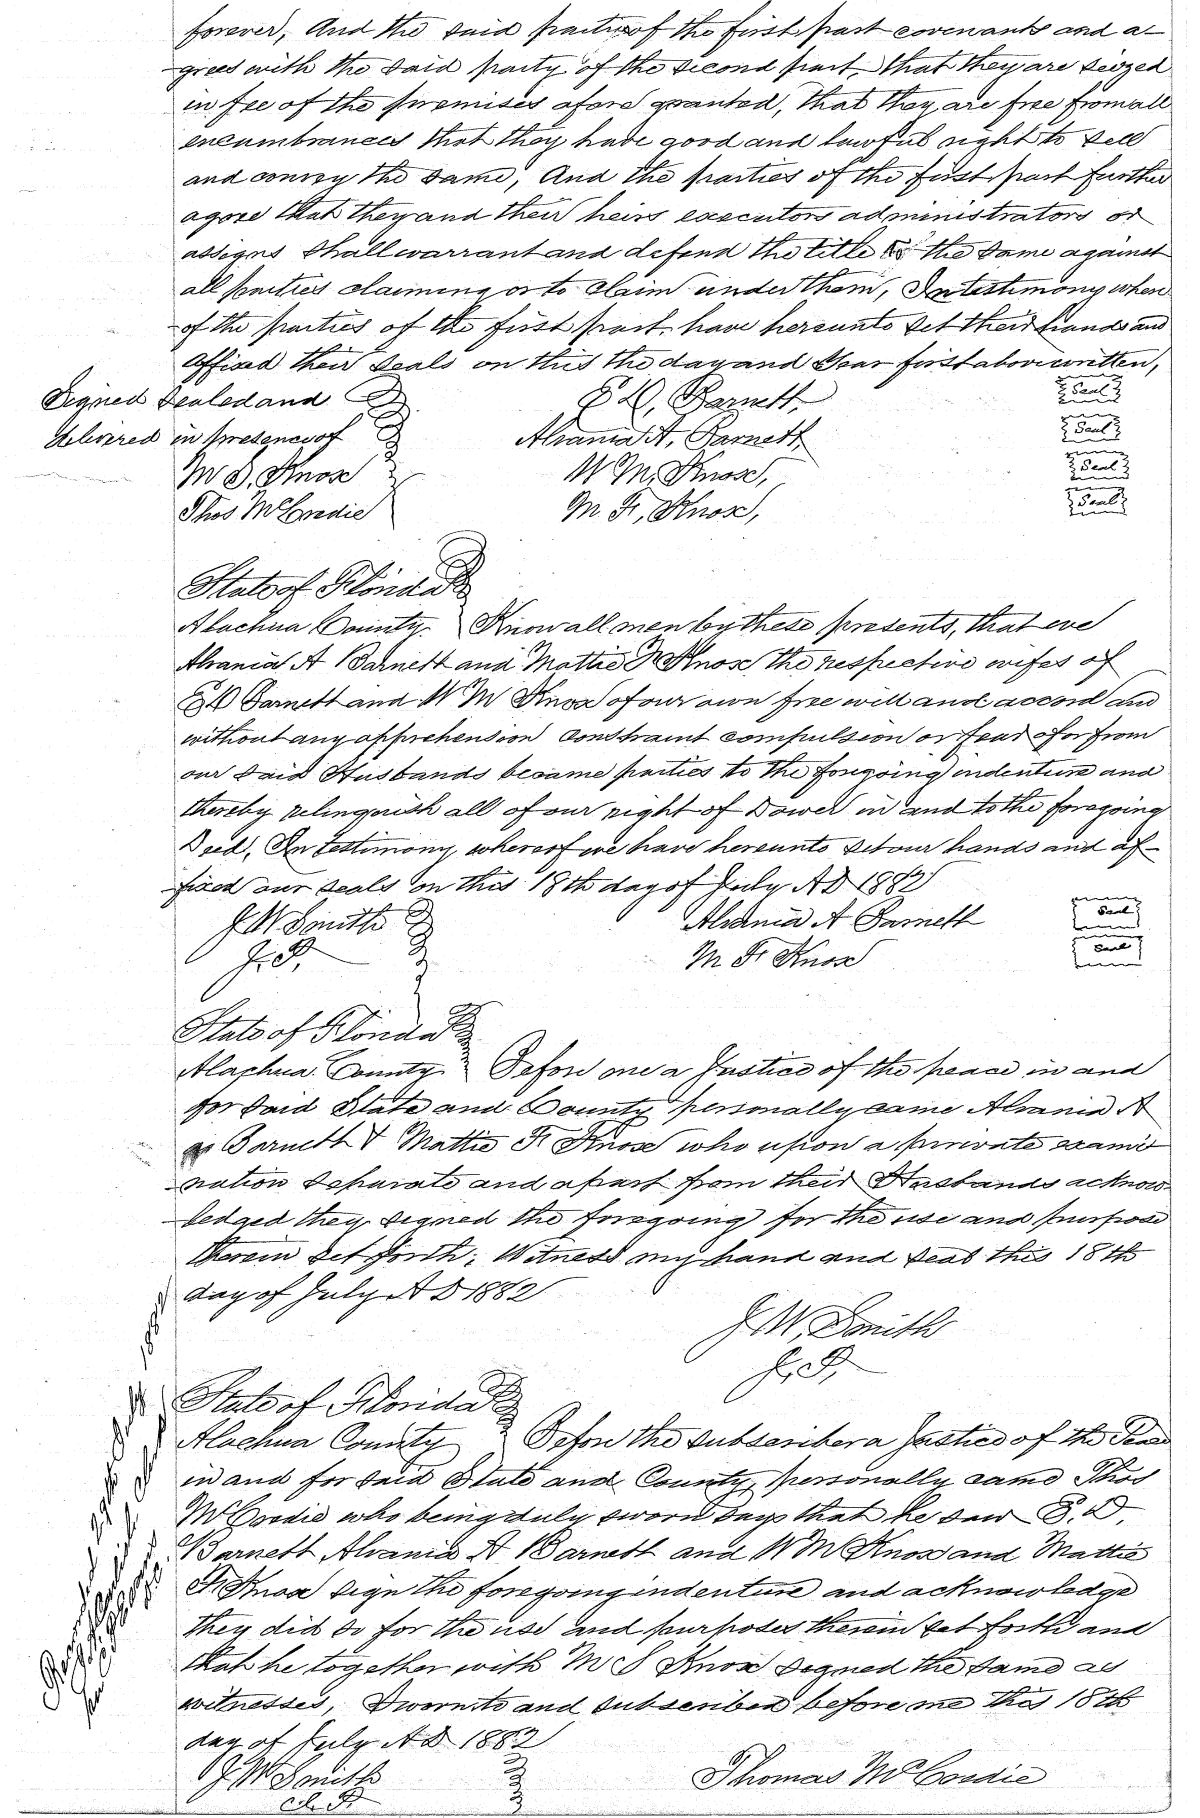 forever, And the said parties of the first part covenants and a-
grees with the said party of the second part, that they are seized
in fee of the premises afore granted, that they are free from all
encumbrances that they have good and lawful right to sell
and convey the same, And the parties of the first part further
agree that they and their heirs executors administrators or
assigns shall warrant and defend the title to the same against
all parties claiming or to claim under them, In testimony where
of the parties of the first part have hereunto set their hands and
affixed their seals on this the day and year first above written,
Signed Sealed and E D, Barnett, Seal
delivered in presence of Alvania A, Barnett Seal
M S, Knox W M, Knox, Seal
Thos McCredie M F, Knox, Seal
State of Florida
Alachua County. Know all men by these presents, that we
Alvania A Barnett and Mattie F Knox the respective wifes of
E D Barnett and W M Knox of our own free will and accord and
without any apprehension constraint compulsion or fear of or from
our said Husbands became parties to the foregoing indenture and
thereby relinquish all of our right of Dower in and to the foregoing
Deed, In testimony whereof we have hereunto set our hands and af-
fixed our seals on this 18th day of July AD 1882
J W Smith Alvania A Barnett Seal
J. P. M F Knox Seal
State of Florida
Alachua County Before me a Justice of the peace in and
for said State and County personally came Alvania A
Barnett & Mattie F Knox who upon a private exami
nation separate and apart from their Husbands acknow-
ledged they signed the foregoing for the use and purpose
therein set forth; Witness my hand and seal this 18th
day of July A D 1882
J. W, Smith
J. P,
State of Florida
Alachua County Before the subscriber a Justice of the Peace
in and for said State and County, personally came Thos
McCredie who being duly sworn says that he saw E. D,
Barnett Alvania A Barnett and W M Knox and Mattie
F. Knox sign the foregoing indenture and acknowledge
they did so for the use and purposes therein set forth and
that he together with M S Knox signed the same as
witnesses, Sworn to and subscribed before me this 18th
day of July A D 1882
J. W Smith Thomas McCredie
J. P.